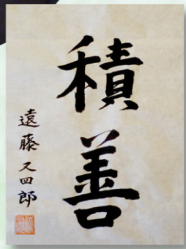 積善
遠藤又四郎